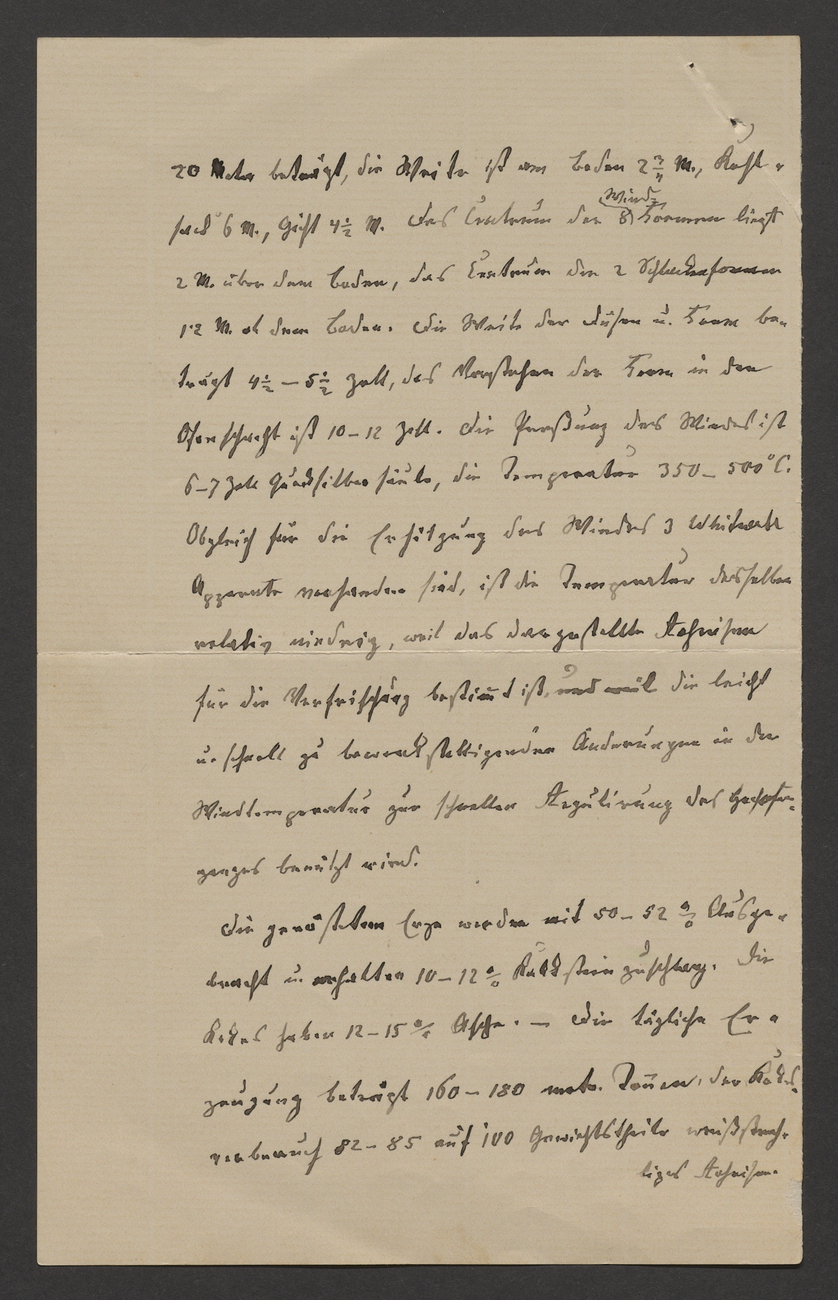 20 Meter beträgt, die Weite ist am Boden 2 3/4 M., Kohl-
sack 6 M., Gicht 4 1/2 M. Das Centrum der 8 Wind-Formen liegt
2 M. über dem Boden, das Centrum der 2 Schlackenformen
1·2 M. ob dem Boden. Die Weite der Düsen u. Form be-
trägt 4 1/2 – 5 1/2 Zoll, das Vorstehen der Form in den
Ofenschacht ist 10–12 Zoll. Die Preßung des Windes ist
6–7 Zoll Quecksilbersäule, die Temperatur 350–500°C.
Obgleich für die Erhitzung des Windes 3 Whitwell
Apparate vorhanden sind, ist die Temperatur desselben
relativ niedrig, weil das dargestellte Roheisen
für die Verfrischung bestimmt ist, und weil die leicht
u. schnell zu bewerkstelligenden Änderungen in der
Windtemperatur zur schnellen Regulirung des Hochofen-
ganges benützt wird.
Die gerösteten Erze werden mit 50–52 % Ausge-
bracht u. erhalten 10–12 % Kalkstein Zuschlag. Die
Kokes haben 12–15 % Asche. — Die tägliche Er-
zeugung beträgt 160–180 metr. Tonnen, der Kokes-
verbrauch 82–85 auf 100 Gewichtstheile weißstrah-
liges Roheisen.